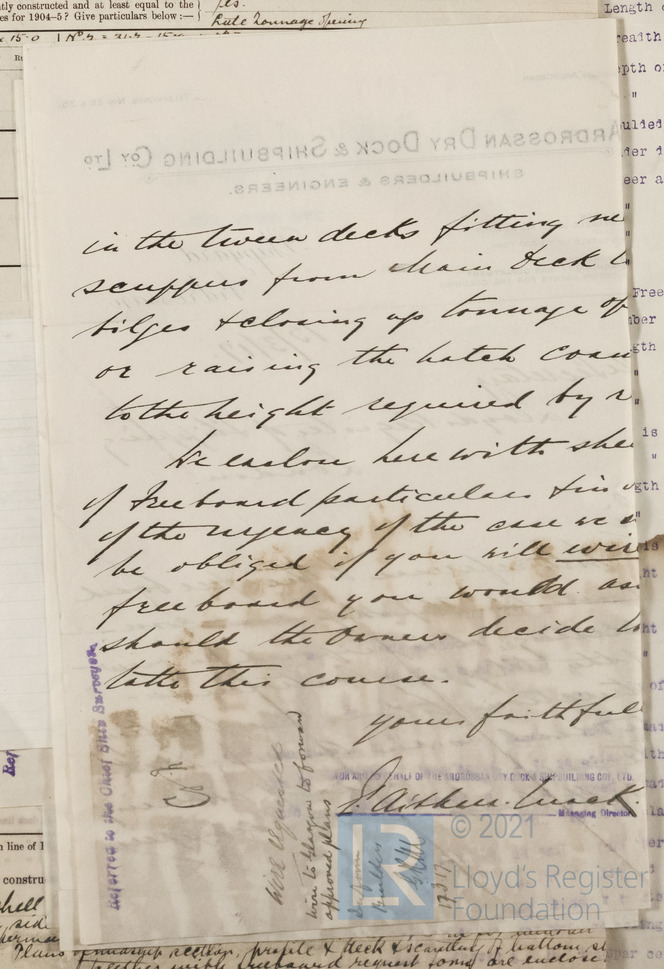 tly constructed and at least equal to the
es for 1904-5? Give particulars below:—
yes.
tonnage opening
Length o
readth
epth o
"
oulded
der d
eer a
"
"
Free
ber
gth
"
"
is
"
gth
"
is
ht
ht
"
of
ARDROSSAN DRY DOCK & SHIPBUILDING COY LTD
SHIPBUILDERS & ENGINEERS.
in the tween decks fitting ne
scuppers from Main Deck t
bilges & closing up tonnage op
or raising the hatch coam
to the height required by r
We enclose herewith shee
of Freeboard particulars & in
of the urgency of the case we s
be obliged if you will wire
freeboard you would as
should the Owners decide to
take this course.
yours faithful
FOR AND ON BEHALF OF THE ARDROSSAN DRY DOCK & SHIPBUILDING COY., LTD.
Managing Director
Referred to the Chief Ship Surveyor
Ref
wire to Glasgow to forward
approved plans
inform
builders
LR
© 2021
Lloyd's Register
Foundation
n line of
constru
hell
side
Plans of midship section, profile & deck & scantling of bottom, st
together with freeboard request form are enclose